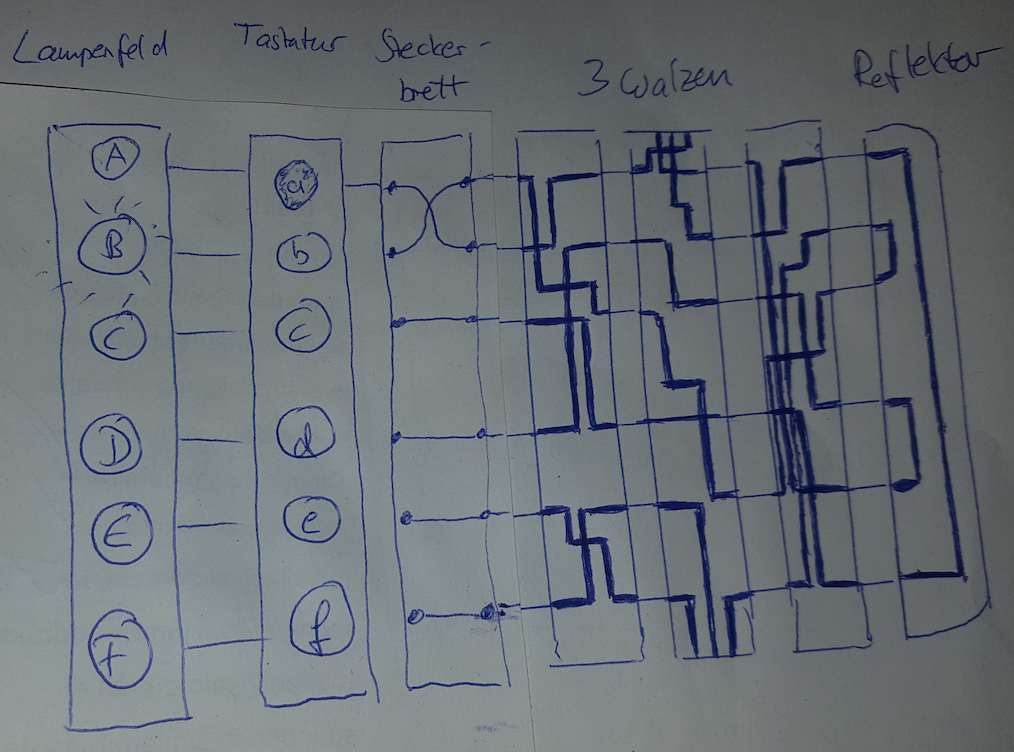 Lampenfeld Tastatur Stecker-
brett 3 Walzen Reflektor
A a
B b
C c
D d
E e
F f